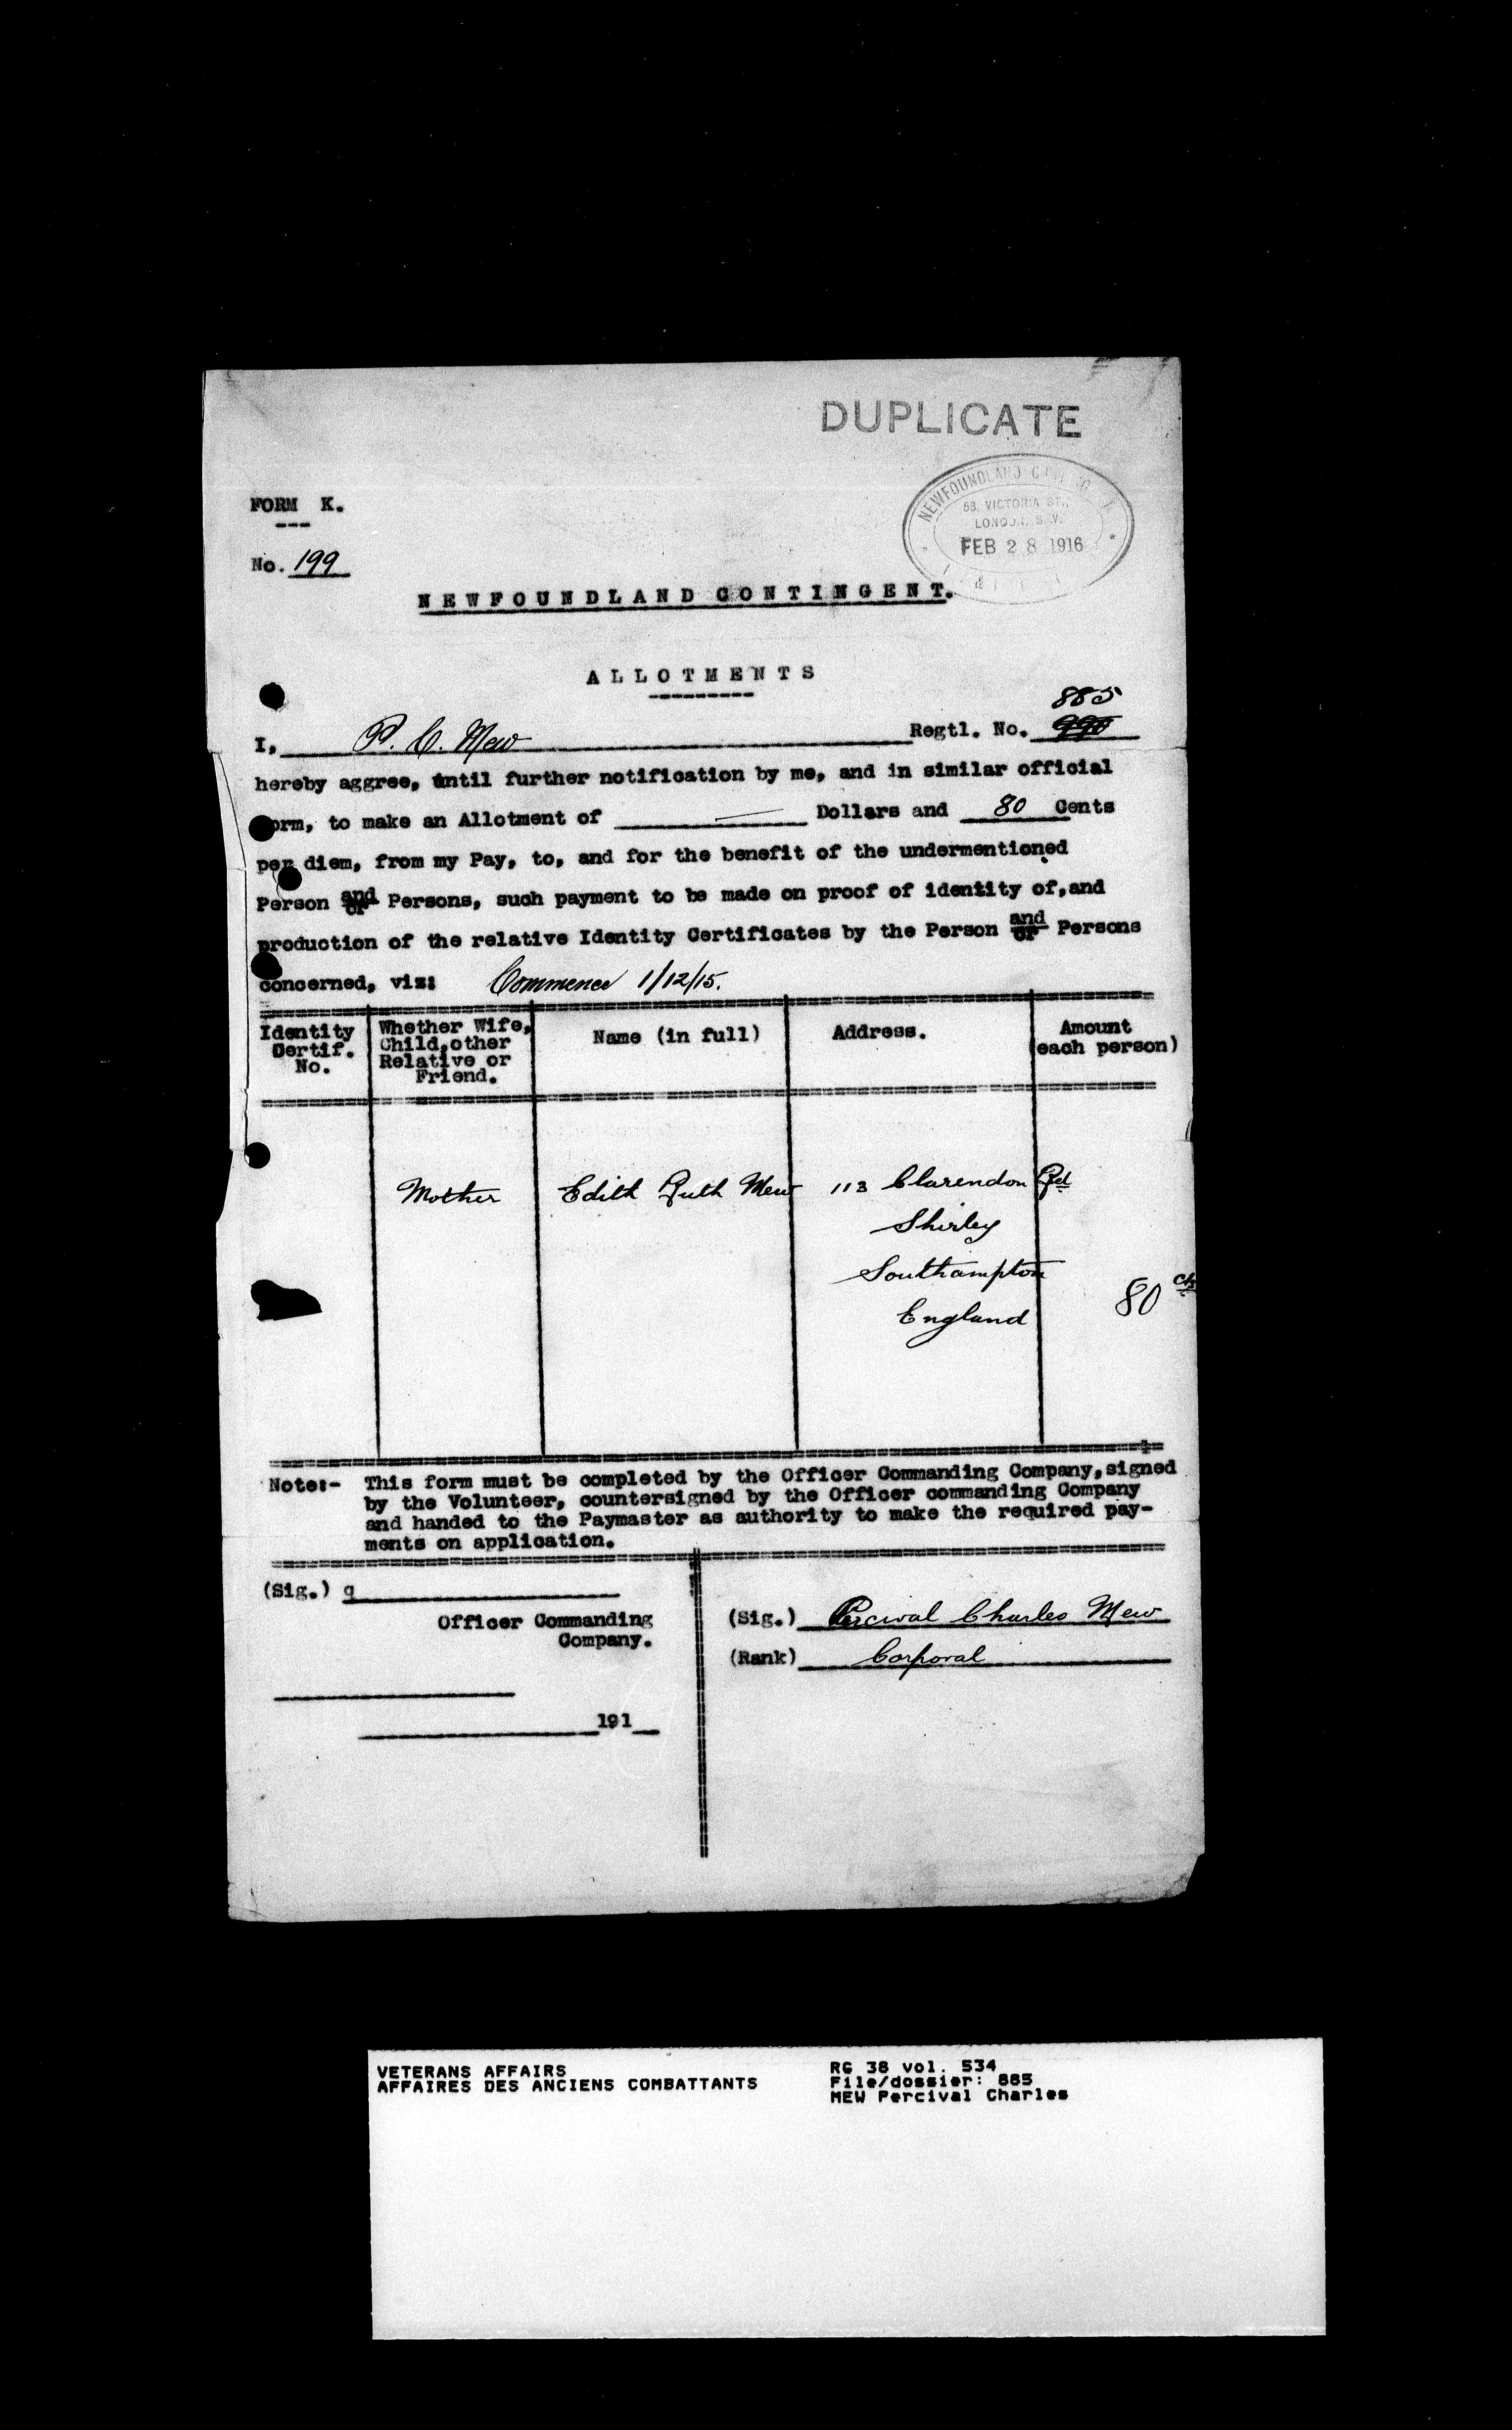 DUPLICATE
NEWFOUNDLAND
58, VICTORIA ST.,
LONDON, S.W.
FEB 28 1916
FORM K.
No. 199
NEWFOUNDLAND CONTINGENT.
ALLOTMENTS
885
I, P. C. Mew Regtl. No. 990
hereby aggree, until further notification by me, and in similar official
orm, to make an Allotment of — Dollars and 80 Cents
per diem, from my Pay, to, and for the benefit of the undermentioned
Person and or Persons, such payment to be made on proof of identity of, and
production of the relative Identity Certificates by the Person and or Persons
concerned, viz: Commence 1/12/15.
Identity Certif. No. Whether Wife, Child, other Relative or Friend. Name (in full) Address. Amount (each person)
Mother Edith Ruth Mew 113 Clarendon Rd
Shirley
Southampton
England 80 cts
Note:- This form must be completed by the Officer Commanding Company, signed
by the Volunteer, countersigned by the Officer commanding Company
and handed to the Paymaster as authority to make the required pay-
ments on application.
(Sig.) q
Officer Commanding
Company.
191
(Sig.) Percival Charles Mew
(Rank) Corporal
VETERANS AFFAIRS
AFFAIRES DES ANCIENS COMBATTANTS
RG 38 vol. 534
File/dossier: 885
MEW Percival Charles